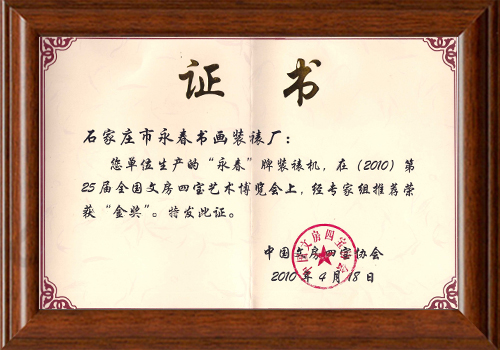 证 书
石家庄市永春书画装裱厂：
您单位生产的“永春”牌装裱机，在（2010）第
25届全国文房四宝艺术博览会上，经专家组推荐荣
获“金奖”。特发此证。
中国文房四宝协会
2010 年 4 月 18 日
中国文房四宝协会